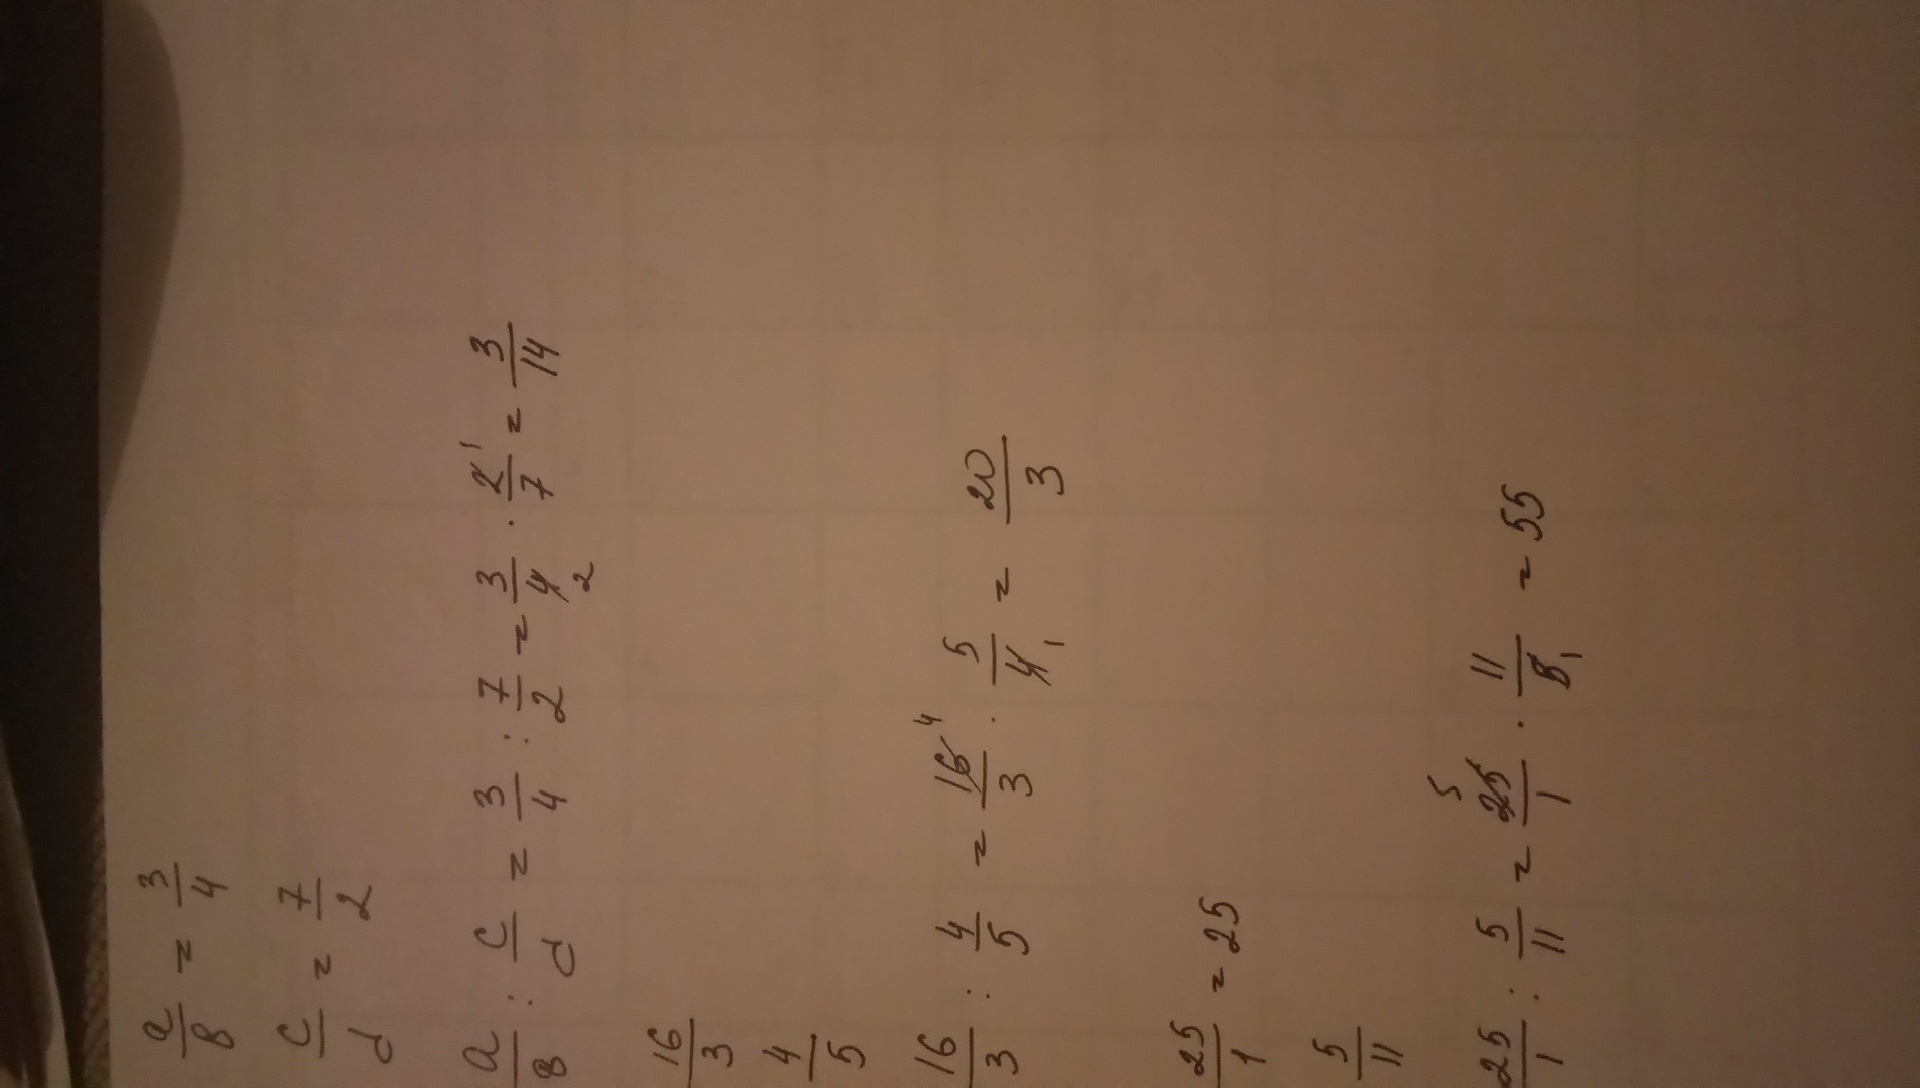 a/b = 3/4
c/d = 7/2
a/b : c/d = 3/4 : 7/2 = 3/4 2 · 2/7 1 = 3/14
16/3
4/5
16/3 : 4/5 = 16/3 4 · 5/4 1 = 20/3
25/1 = 25
5/11
25/1 : 5/11 = 25/1 5 · 11/5 1 = 55